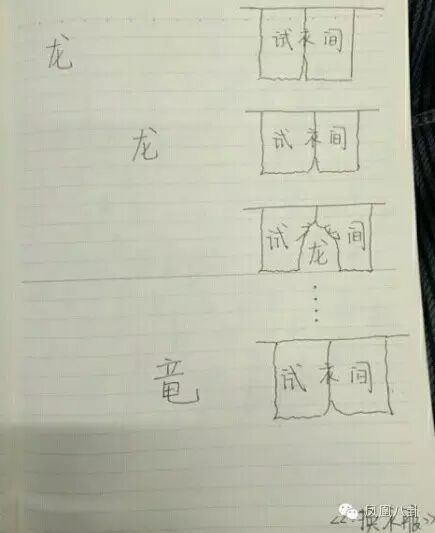 试衣间
龙
试衣间
龙
试衣间
龙
试衣间
竜
凤凰八卦
<2.换衣服>